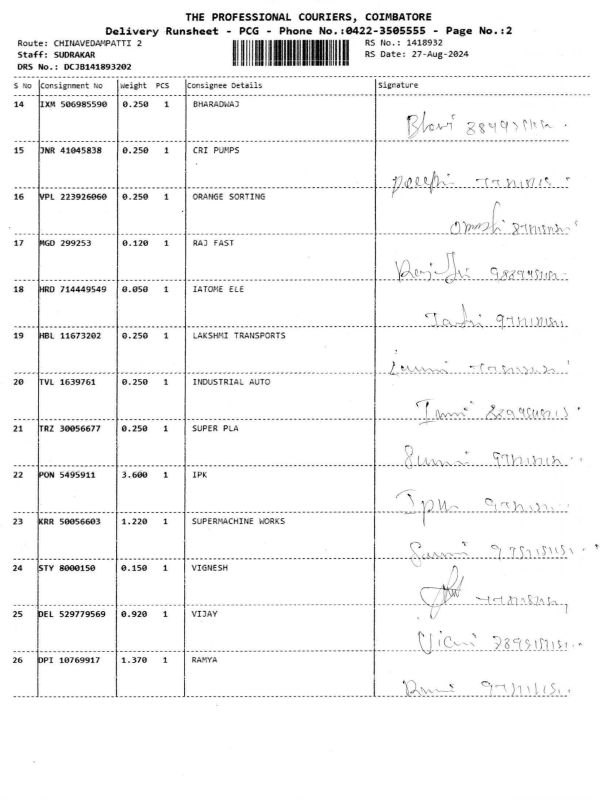 THE PROFESSIONAL COURIERS, COIMBATORE
Delivery Runsheet - PCG - Phone No.:0422-3505555 - Page No.:2
Route: CHINAVEDAMPATTI 2 RS No.: 1418932
Staff: SUDRAKAR RS Date: 27-Aug-2024
DRS No.: DCJB141893202
S No Consignment No Weight PCS Consignee Details Signature
14 IXM 506985590 0.250 1 BHARADWAJ
15 JNR 41045838 0.250 1 CRI PUMPS
16 VPL 223926060 0.250 1 ORANGE SORTING
17 MGD 299253 0.120 1 RAJ FAST
18 HRD 714449549 0.050 1 IATOME ELE
19 HBL 11673202 0.250 1 LAKSHMI TRANSPORTS
20 TVL 1639761 0.250 1 INDUSTRIAL AUTO
21 TRZ 30056677 0.250 1 SUPER PLA
22 PON 5495911 3.600 1 IPK
23 KRR 50056603 1.220 1 SUPERMACHINE WORKS
24 STY 8000150 0.150 1 VIGNESH
25 DEL 529779569 0.920 1 VIJAY
26 DPI 10769917 1.370 1 RAMYA